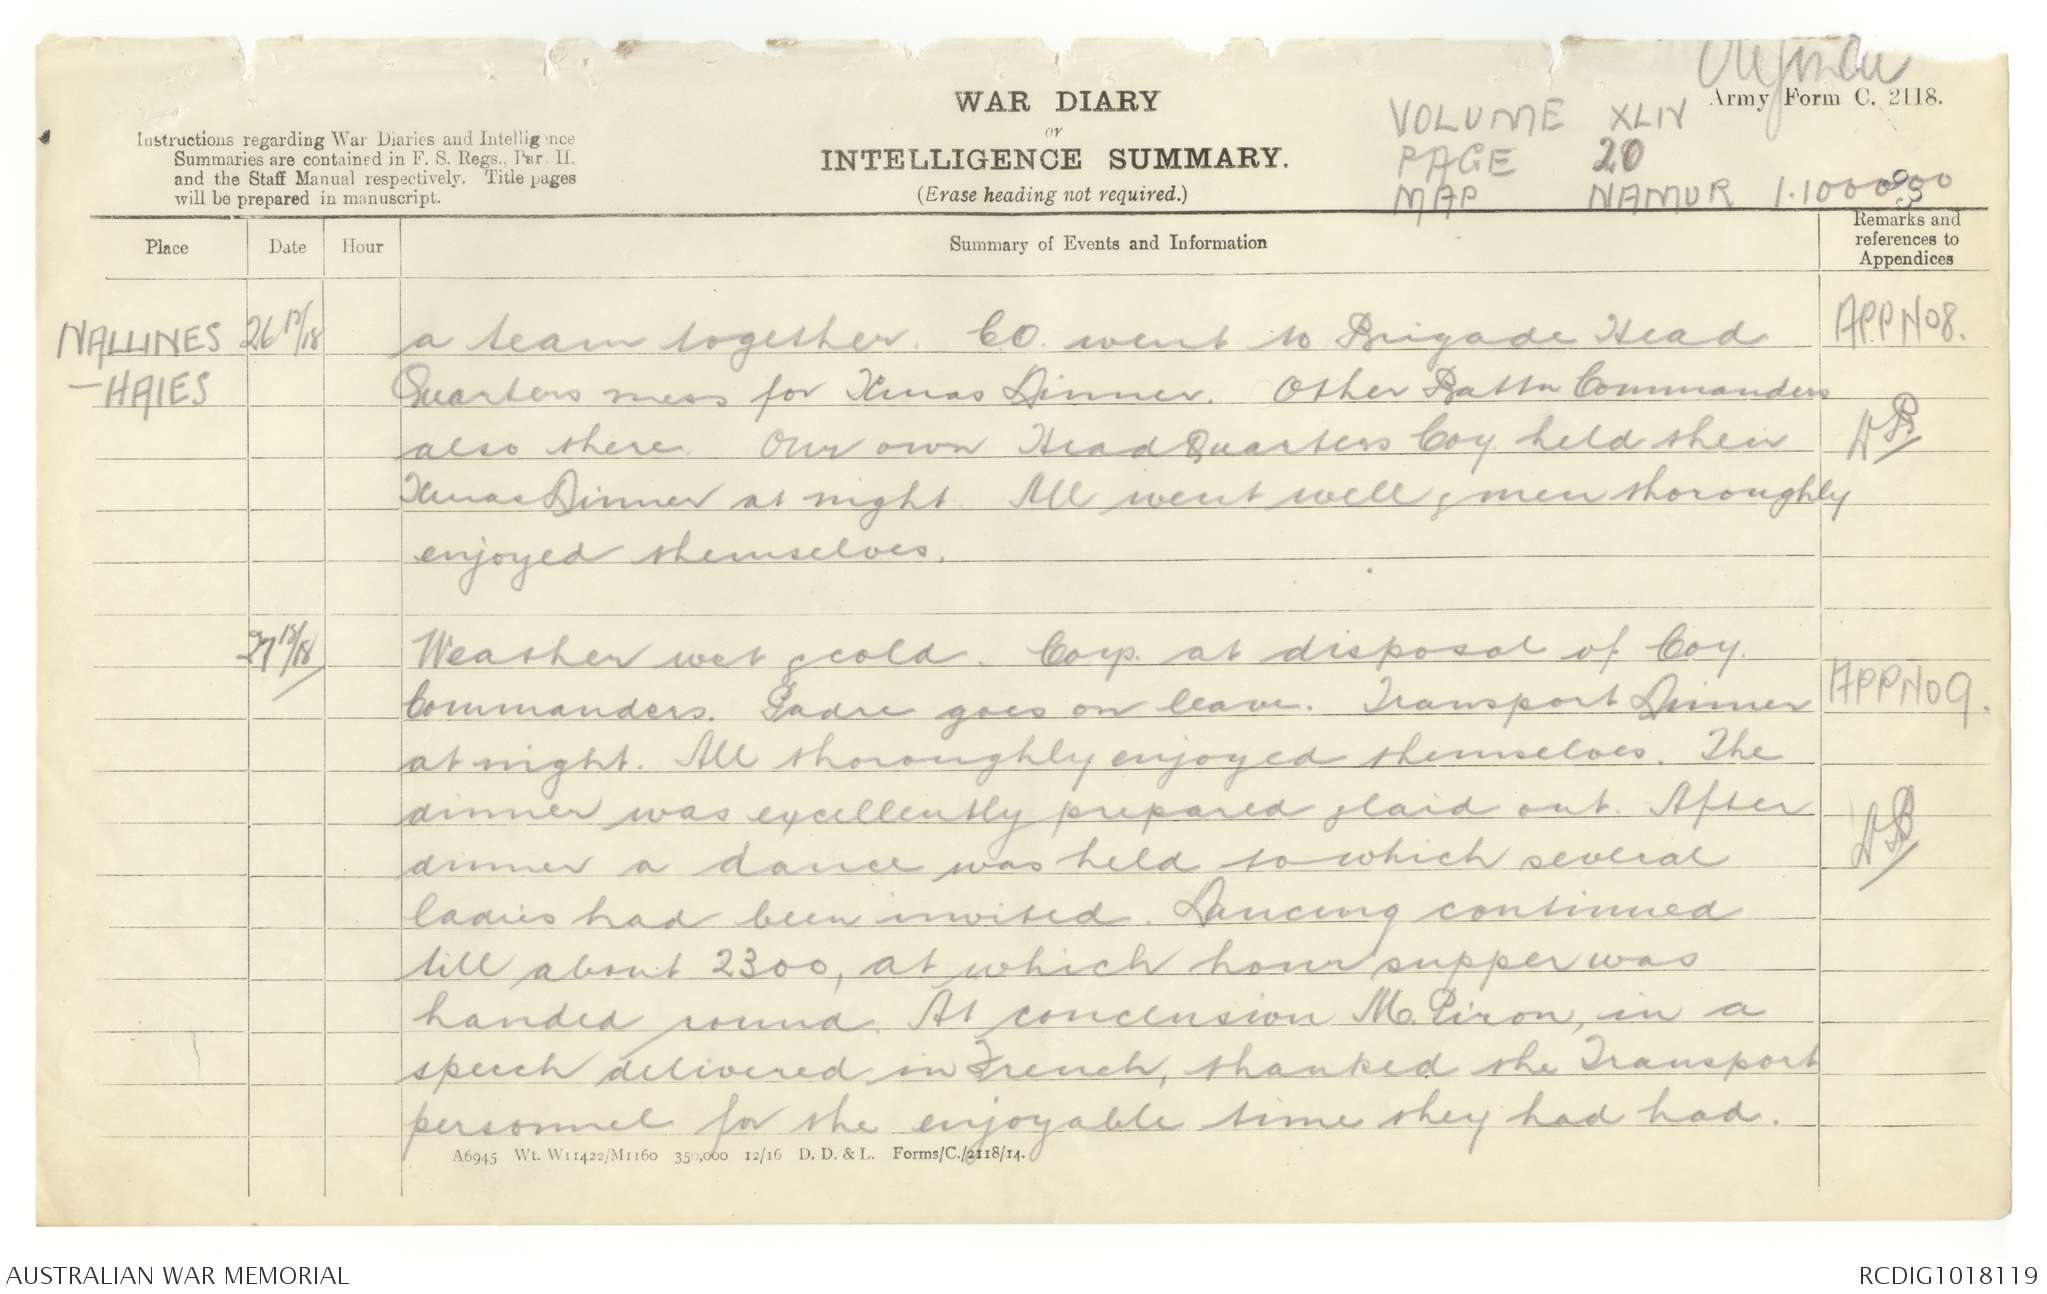 Original
Army Form C. 2118.
WAR DIARY
or
INTELLIGENCE SUMMARY.
(Erase heading not required.)
Instructions regarding War Diaries and Intelligence
Summaries are contained in F. S. Regs., Part II.
and the Staff Manual respectively. Title pages
will be prepared in manuscript.
VOLUME XLIV
PAGE 20
MAP NAMUR 1.100000
Place Date Hour Summary of Events and Information Remarks and references to Appendices
NALLINES 26 12/18 a team together. C.O. went to Brigade Head APPNO8.
—HAIES Quarters mess for Xmas Dinner. Other Battn Commanders
also there. Our own Head Quarters Coy held their
Xmas Dinner at night. All went well & men thoroughly
enjoyed themselves.
27 12/18 Weather wet & cold. Coys. at disposal of Coy.
Commanders. Padre goes on leave. Transport Dinner APPNO9.
at night. All thoroughly enjoyed themselves. The
dinner was excellently prepared & laid out. After
dinner a dance was held to which several
ladies had been invited. Dancing continued
till about 2300, at which hour supper was
handed round. At conclusion M. Piron, in a
speech delivered in French, thanked the Transport
personnel for the enjoyable time they had had.
A6945 Wt. W11422/M1160 350,000 12/16 D. D. & L. Forms/C./2118/14.
AUSTRALIAN WAR MEMORIAL
RCDIG1018119